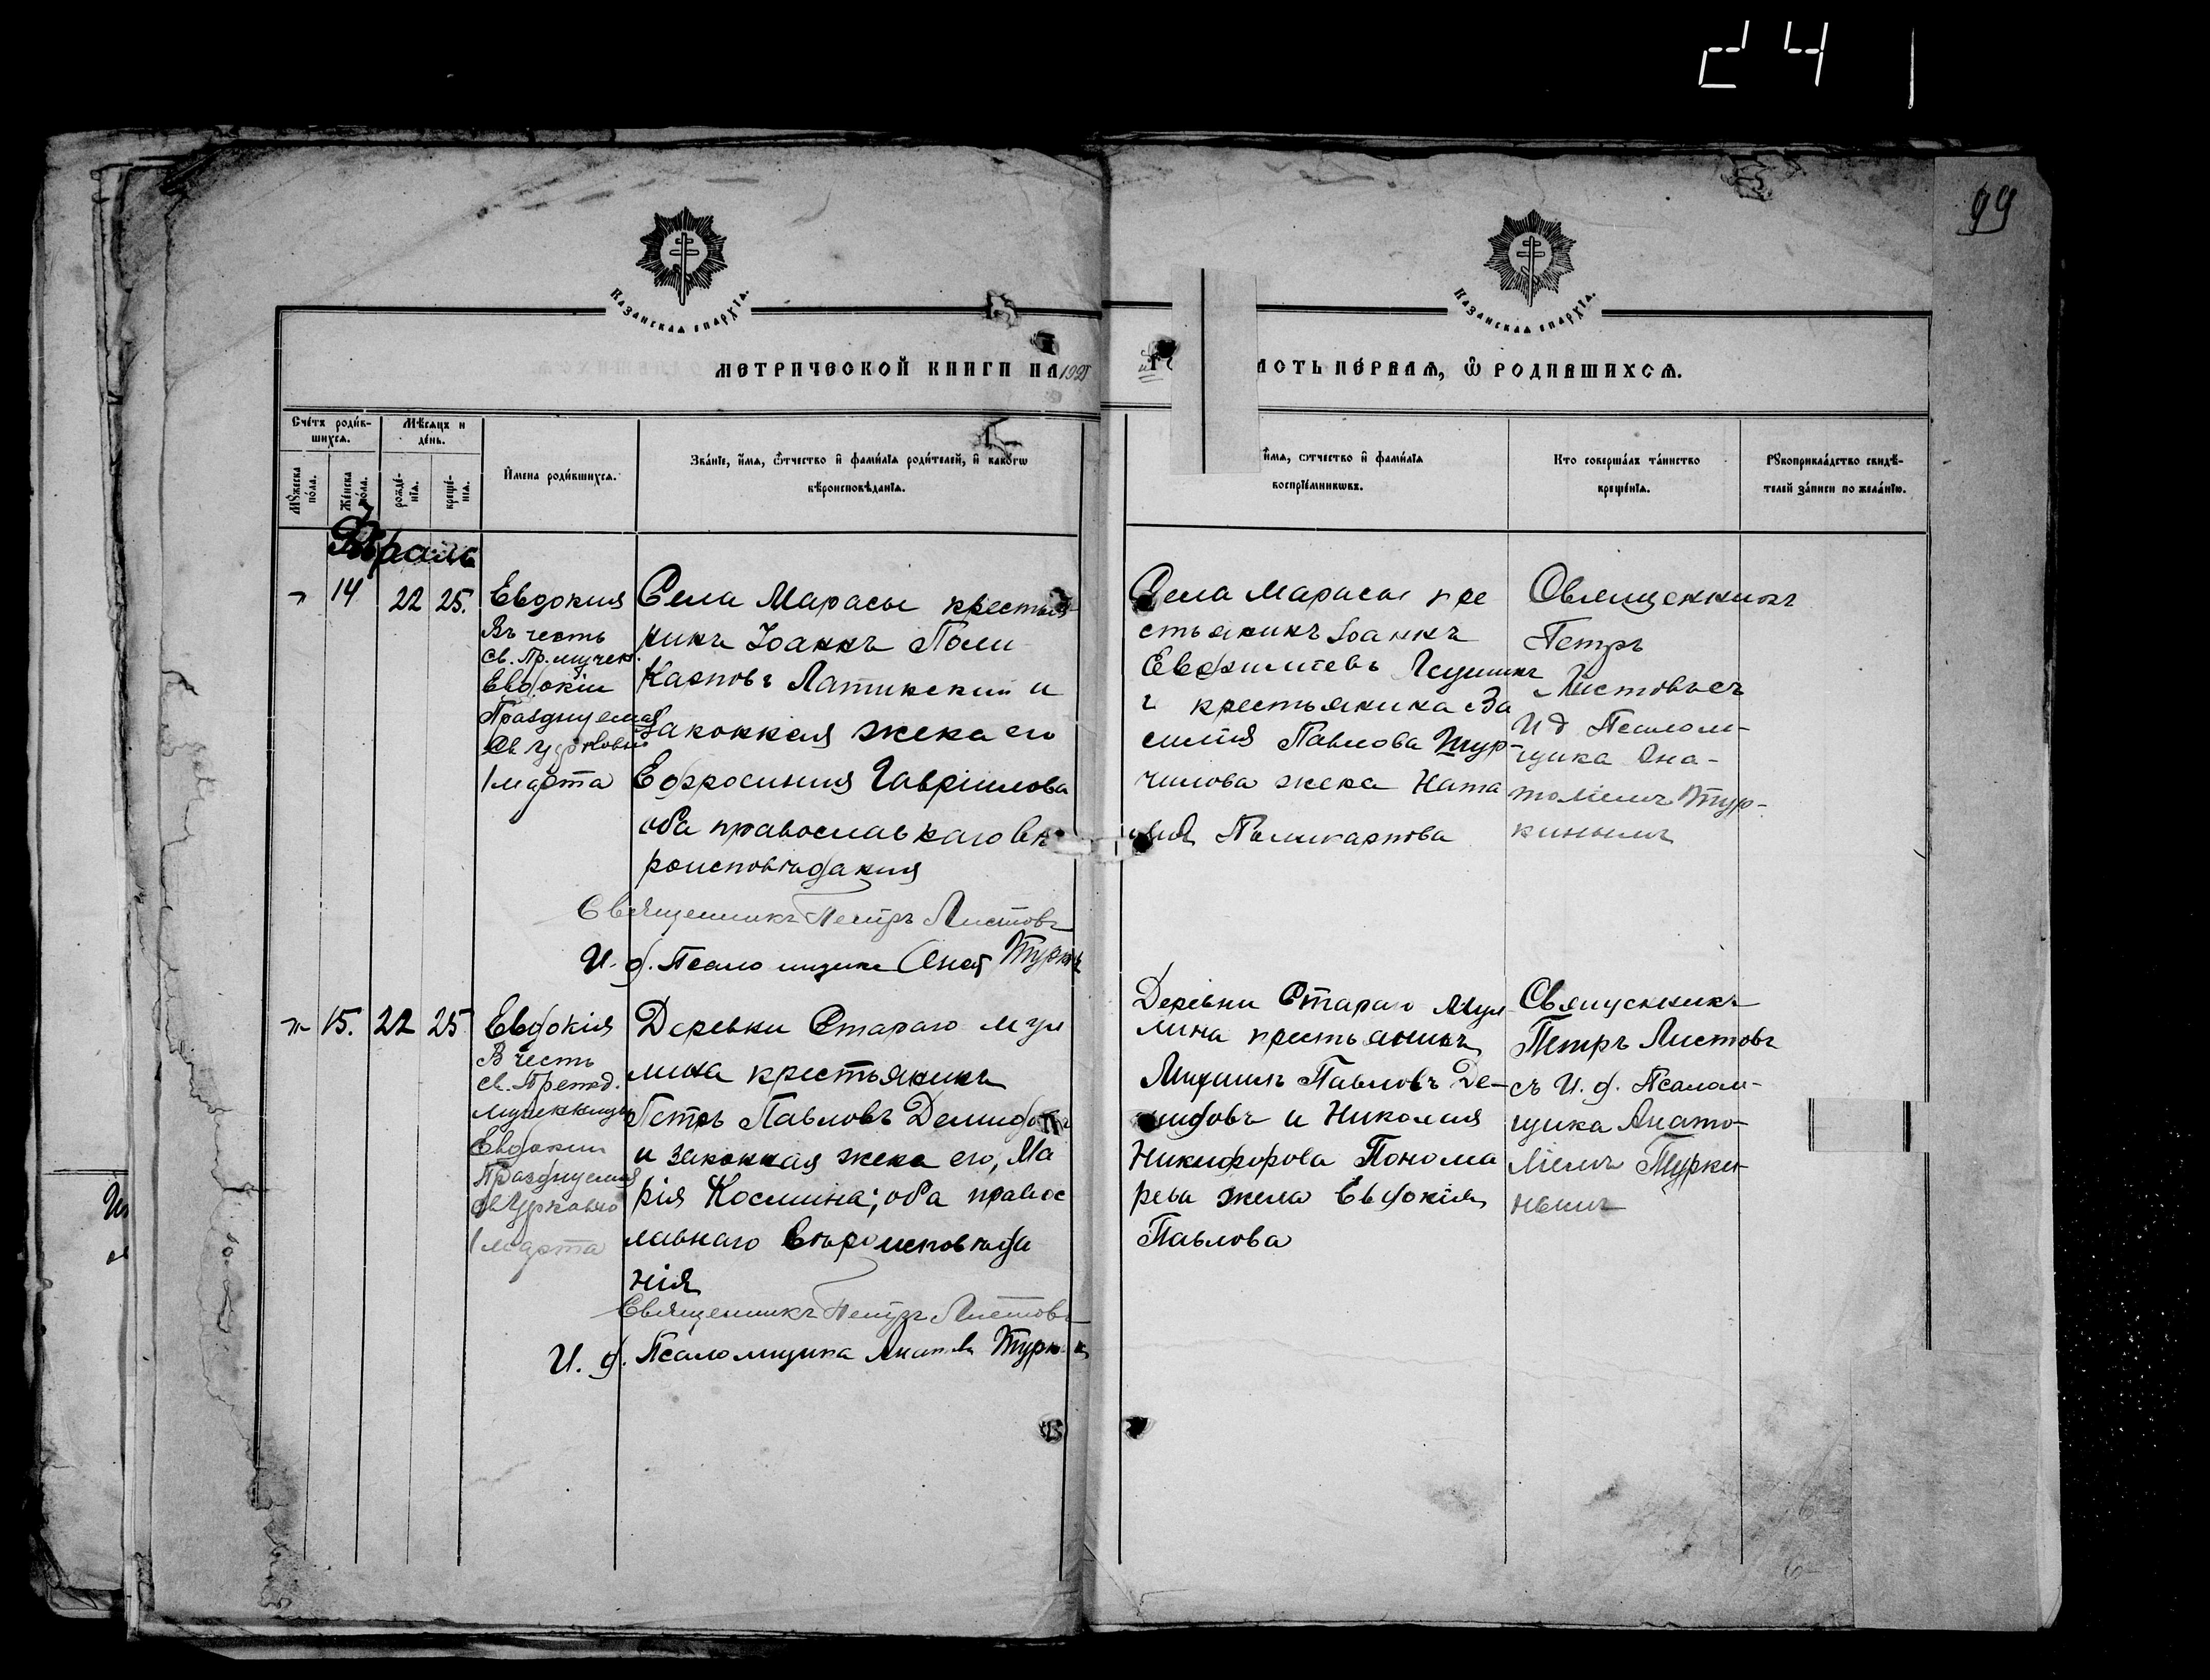 24
99
Казанская епархїа.
Казанская епархїа.
МЕТРИЧЕСКОЙ КНИГИ НА 192
АСТЬ ПЕРВАѦ, Ѡ РОДИВШИХСѦ.
Сче́тъ роди́в-
шихсѧ.
Мѣ́сѧцъ и
де́нь.
Мꙋ́жеска
по́ла.
Же́нска
по́ла.
рожде́-
нїѧ.
креще́-
нїѧ.
И҆мена роди́вшихсѧ.
Зва́нїе, и҆́мѧ, ѻ҆́тчество и҆ фами́лїѧ роди́телей, и҆ како́гѡ
вѣроисповѣ́данїѧ.
и҆́мѧ, ѻ҆тчество и҆ фами́лїѧ
воспрїе́мникѡвъ.
Кто соверша́лъ та́инство
креще́нїѧ.
Рꙋкоприкла́дство свидѣ́-
телей за́писи по жела́нїю.
14
22
25.
Евдокия
Въ честь
св. Пр. мучен.
Евдокіи
Празднуемая
Церковью
1 марта
Села Марасы крестья
нинъ Іоаннъ Поли
карповъ Латинскій и
законная жена его
Евфросиния Гавріилова
оба православнаго вѣ
роисповѣдания
Священникъ Петръ Листовъ
И. д. Псаломщика Анат Турк
Села Марасы кре
стьянинъ Іоаннъ
Евфимiевъ
и крестьянина Ва
силия Павлова
чилова жена Ната
лия Поликарпова
Священникъ
Петръ
Листовъ съ
И д Псалом-
щика Ана-
толіемъ Тур-
кинымъ
15.
22
25
Евдокія
В честь
св. Препод.
Мученницы
Евдокии
Празднуемая
Церковью
1 марта
Деревни Стараго Мул
лина крестьянинъ
Петръ Павловъ Демидовъ
и законная жена его, Ма
рія Космина; оба правос
лавнаго вѣроисповѣда
нія
Священникъ Петръ Листовъ
И. д. Псаломщика Анат Турк
Деревни Стараго Мул
лина крестьянинъ
Павловъ Де-
мидовъ и Николая
Никифорова Понома
рева жена Евдокія
Павлова
Священникъ
Петръ Листовъ
съ И. д. Псалом-
щика Анато-
ліемъ Турки-
нымъ